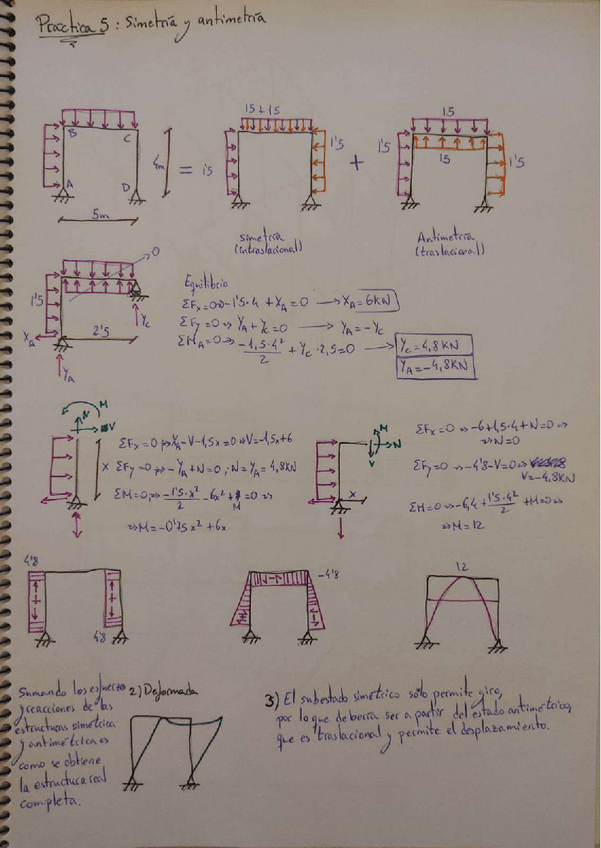 Práctica 5: Simetría y antimetría
15+15
15
B
C
4m
=
1'5
1'5
+
1'5
15
1'5
A
D
5m
simetría
(intraslacional)
Antimetría
(traslacional)
0
Equilibrio
1'5
ΣFx=0 ⇒ -1'5·4 + XA = 0 → XA = 6KN
2'5
YC
ΣFy=0 ⇒ YA + YC = 0 → YA = -YC
XA
ΣMA=0 ⇒ -1,5·4²/2 + YC·2,5=0 → YC = 4,8KN
YA = -4,8KN
YA
M
N
V
ΣFx=0 ⇒ XA-V-1,5x=0 ⇒ V=-1,5x+6
x
ΣFy=0 ⇒ -YA+N=0; N=YA=4,8KN
ΣM=0 ⇒ -1'5·x²/2 - 6x + M = 0 ⇒
⇒ M = -0'75x² + 6x
M
N
V
x
ΣFx=0 ⇒ -6+1,5·4+N=0 ⇒
⇒ N=0
ΣFy=0 ⇒ -4'8-V=0 ⇒
V=-4,8KN
ΣM=0 ⇒ -6,4 + 1'5·4²/2 + M=0 ⇒
⇒ M = 12
4'8
4'8
-4'8
12
Sumando los esfuerzos
y reacciones de las
estructuras simétrica
y antimétrica es
como se obtiene
la estructura real
completa.
2) Deformada
3) El subestado simétrico sólo permite giro,
por lo que debería ser a partir del estado antimétrico,
que es traslacional y permite el desplazamiento.